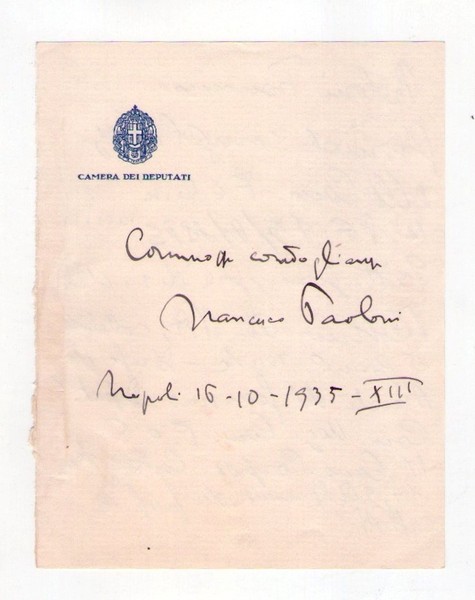 CAMERA DEI DEPUTATI
Commosse condoglianze
Francesco Paoloni
Napoli 16-10-1935-XIII